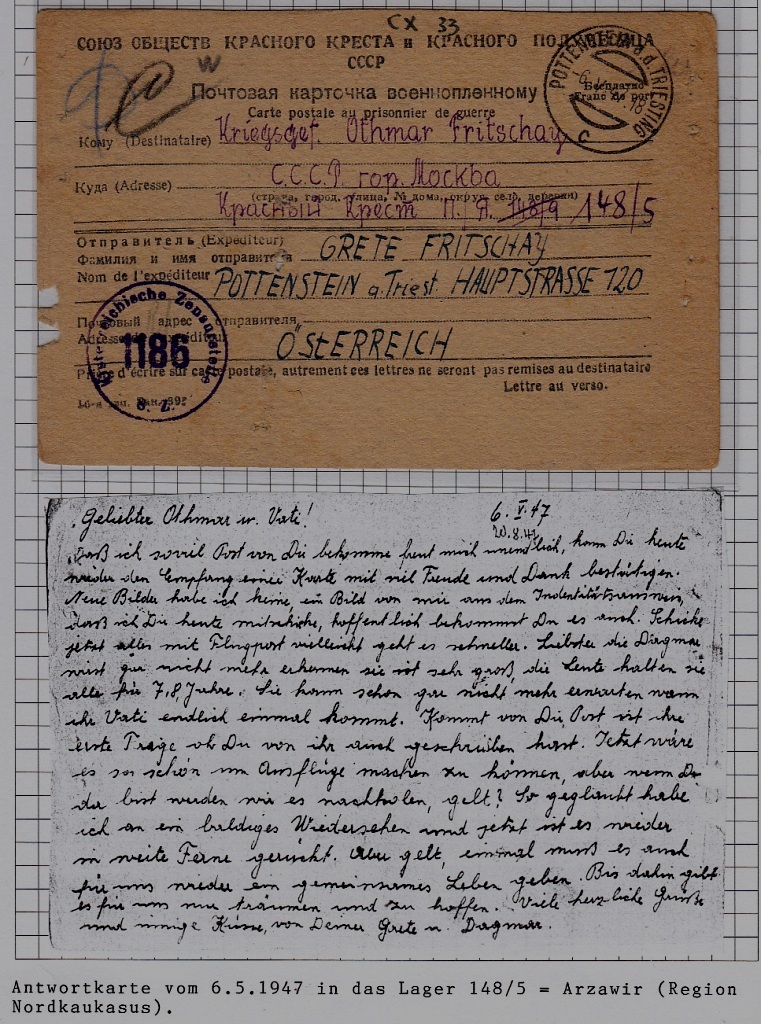 CX 33
СОЮЗ ОБЩЕСТВ КРАСНОГО КРЕСТА и КРАСНОГО ПОЛУМЕСЯЦА
СССР
W
Почтовая карточка военнопленному
Бесплатно
Franc de port
Carte postale au prisonnier de guerre
POTTENSTEIN a.d. TRIESTING
Кому (Destinataire) Kriegsgef. Othmar Fritschay
Куда (Adresse) С.С.С.Р. гор. Москва
(страна, город, улица, № дома, округ, село, деревня)
Красный Крест П. Я. 148/9 148/5
Отправитель (Expéditeur)
Фамилия и имя отправителя GRETE FRITSCHAY
Nom de l'expéditeur POTTENSTEIN a. Triest. HAUPTSTRASSE 120
Почтовый адрес отправителя
Adresse de l'expéditeur ÖSTERREICH
Österreichische Zensurstelle
1186
S. Z.
Prière d'écrire sur carte postale, autrement ces lettres ne seront pas remises au destinataire
Lettre au verso.
16-я тип. Зак. 392
Geliebter Othmar u. Vati! 6. V. 47
20.8.47
Daß ich soviel Post von Dir bekomme freut mich unendlich, kann Dir heute
wieder den Empfang einer Karte mit viel Freude und Dank bestätigen.
Neue Bilder habe ich keine, ein Bild von mir aus dem Indentitätsausweis,
daß ich Dir heute mitschicke, hoffentlich bekommst Du es auch. Schicke
jetzt alles mit Flugpost vielleicht geht es schneller. Liebster die Dagmar
wirst gar nicht mehr erkennen sie ist sehr groß, die Leute halten sie
alle für 7,8 Jahre. Sie kann schon gar nicht mehr erwarten wann
ihr Vati endlich einmal kommt. Kommt von Dir Post ist ihre
erste Frage ob Du von ihr auch geschrieben hast. Jetzt wäre
es so schön um Ausflüge machen zu können, aber wenn Du
da bist werden wir es nachholen, gelt? So geglaubt habe
ich an ein baldiges Wiedersehen und jetzt ist es wieder
in weite Ferne gerückt. Aber gelt, einmal muß es auch
für uns wieder ein gemeinsames Leben geben. Bis dahin gibt
es für uns nur träumen und zu hoffen. Viele herzliche Grüße
und innige Küsse, von Deiner Grete u. Dagmar.
Antwortkarte vom 6.5.1947 in das Lager 148/5 = Arzawir (Region
Nordkaukasus).